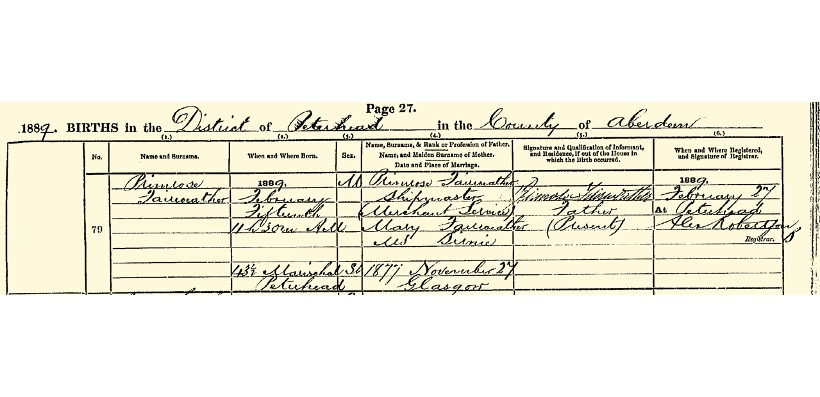 Page 27.
1889. BIRTHS in the District of Peterhead in the County of Aberdeen
(1.) (2.) (3.) (4.) (5.) (6.)
No. Name and Surname. When and Where Born. Sex. Name, Surname, & Rank or Profession of Father. Name, and Maiden Surname of Mother. Date and Place of Marriage. Signature and Qualification of Informant, and Residence, if out of the House in which the Birth occurred. When and Where Registered, and Signature of Registrar.
Primrose 1889. M Primrose Fairweather 1889.
Fairweather February Shipmaster Primrose Fairweather February 27
Fifteenth (Merchant Service) Father At Peterhead
79 11 h 30 m A M Mary Fairweather (Present) Alex Robertson
M.S. Birnie Registrar.
Marischal St 1877 November 27
Peterhead Glasgow